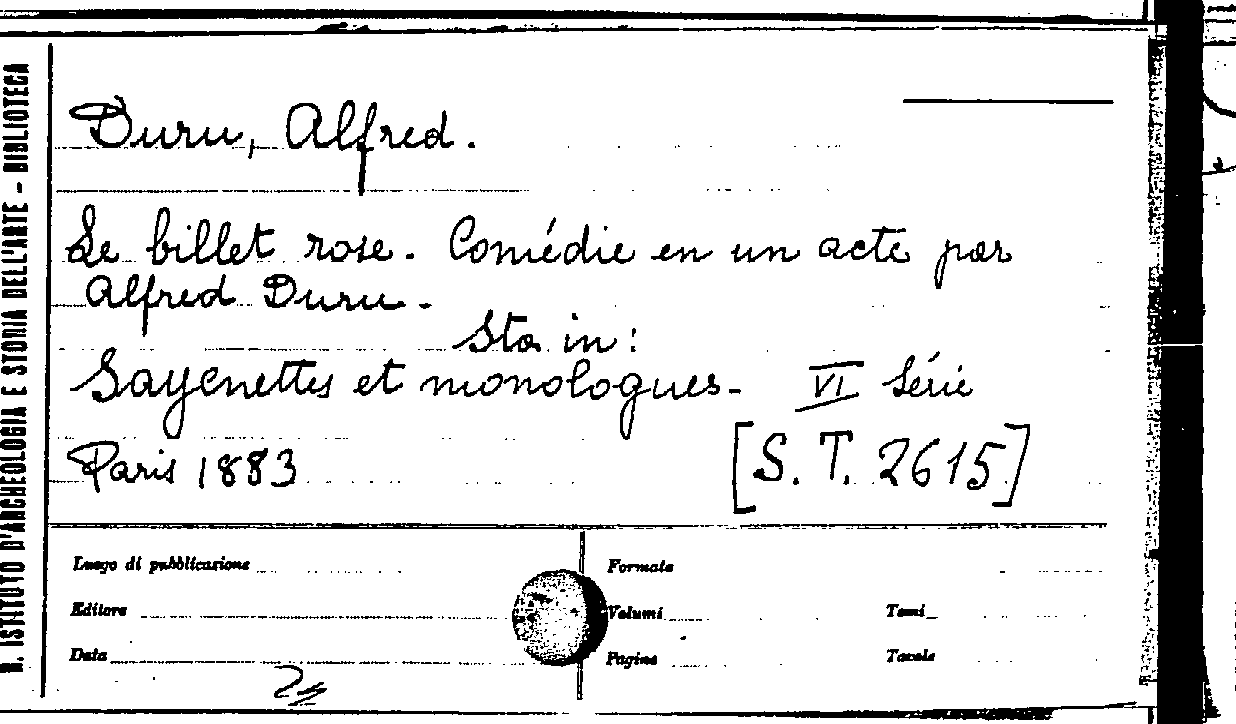 R. ISTITUTO D'ARCHEOLOGIA E STORIA DELL'ARTE - BIBLIOTECA
Duru, Alfred.
Le billet rose. Comédie en un acte par
Alfred Duru.
Sta in:
Sayenettes et monologues- VI Série
Paris 1883 [S. T. 2615]
Luogo di pubblicazione
Formato
Editore
Volumi
Tomi
Data
Pagine
Tavole